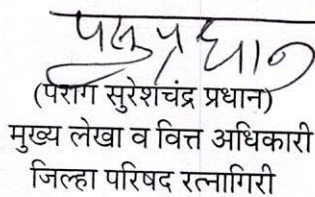 (पराग सुरेशचंद्र प्रधान)
मुख्य लेखा व वित्त अधिकारी
जिल्हा परिषद रत्नागिरी